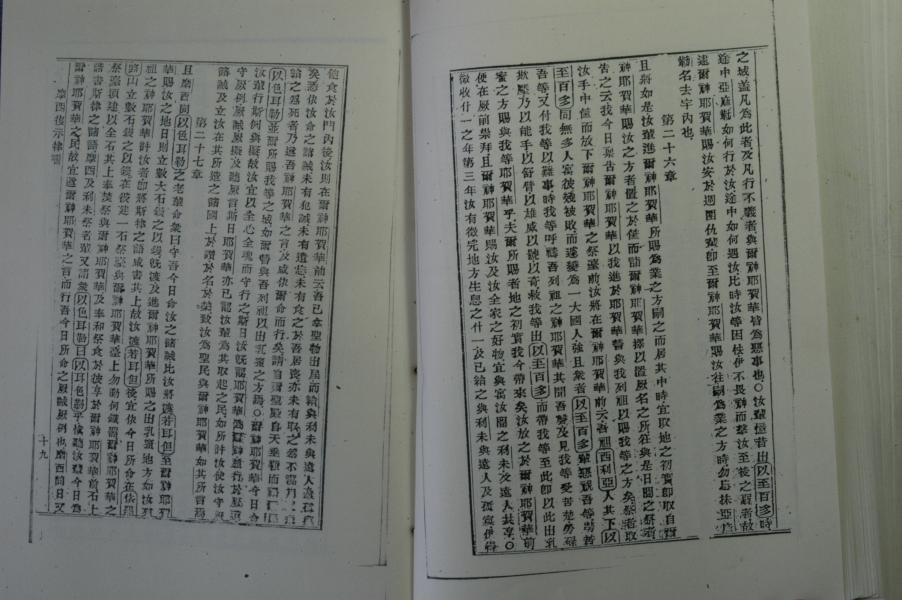 之城蓋凡為此者及凡行不義者與爾神耶賀華皆為惡事也○汝輩憶昔出以至百多時
途中亞麻勒如何行於汝途中如何遇汝比時汝等困
爾神耶賀華賜汝安於週圍仇輩即至耶賀華賜汝往嗣為業之方時勿忘抹亞
名去宇內也
第二十六章
且將如是汝輩進爾神耶賀華所賜為業之方嗣之而居其中時宜取地之初實即取自爾
神耶賀華賜汝之方者置之於筐而詣爾神耶賀華擇以置厥名之所在與是日間之祭者
告之云我今日稟告爾神耶賀華以我進於耶賀華誓與我列祖以賜我等之方矣祭者取
汝手中筐而放下爾神耶賀華之祭臺前汝將在爾神耶賀華前云吾祖西利亞人其下以
至百多同無多人寓彼幾被敗而遂變為一大國人強且眾者以至百多輩惡視吾等苦
吾等又付我等以難事時我等呼籲吾列祖之神耶賀華其聞吾聲及見我等受苦楚勞碌
欺壓乃以能手以舒臂以雄威以號以奇救我等出以至百多而帶我等至此即以此出乳
蜜之方賜與我等耶賀華乎夫爾所賜者地之初實我今帶來矣汝放之於爾神耶賀華前
便在厥前崇拜且爾神耶賀華賜汝及汝全家之好物宜與寓汝間之利未及遠人共享○
徵收什一之年第三年汝有徵完地方生息之什一及已給之與利未及遠人及孤寡伊得
飽食於汝門內後汝則在爾神耶賀華前云吾已拿聖物出屋而給與利未與遠人
矣憑依汝命之諸誡未有犯誡未有遺忘未有食之於吾喪亦未有取之為不當用
諸之為死者乃遵吾神耶賀華之言及咸依爾命而行矣請自爾聖處自天垂顧而
以色耳勒並爾所賜我等之城如爾誓與吾列祖以出乳蜜之方焉○爾神耶賀華今日命
汝輩行斯例與擬故汝宜以全心全魂而守行之斯日汝既認耶賀華為爾神
守厥例厥誡厥擬及聽厥言斯日耶賀華亦已認汝輩為其取起之民如所許使汝守
諸誡及立汝在其所造之諸國上於讚於名於榮致汝為聖民與爾神耶賀華如其所言焉
第二十七章
且摩西同以色耳勒之老輩命眾曰守吾今日命汝之諸誡比汝將渡若耳但至爾神耶賀
華賜汝之地日則立數大石鏝之以鏝既渡及進爾神耶賀華所賜之出乳蜜地方如汝列
祖之神耶賀華許汝者即將斯律之諸成書其上故汝渡若耳但後宜依今日所命在依
路山立數石鏝之以鏝在彼建一石祭臺與爾神耶賀華臺上勿動何鐵器爾神耶賀華之
祭臺須建以全石其上奉焚祭與爾神耶賀華及奉和祭食於彼享於爾神耶賀華前石上
諸書斯律之諸語摩西及利未祭者輩又謂眾以色耳勒曰以色耳勒乎依聽汝輩今日為
爾神耶賀華之民故宜遵爾神耶賀華之言而行吾今日所命之厥誡厥例也摩西前日又
摩西復示律書
十九